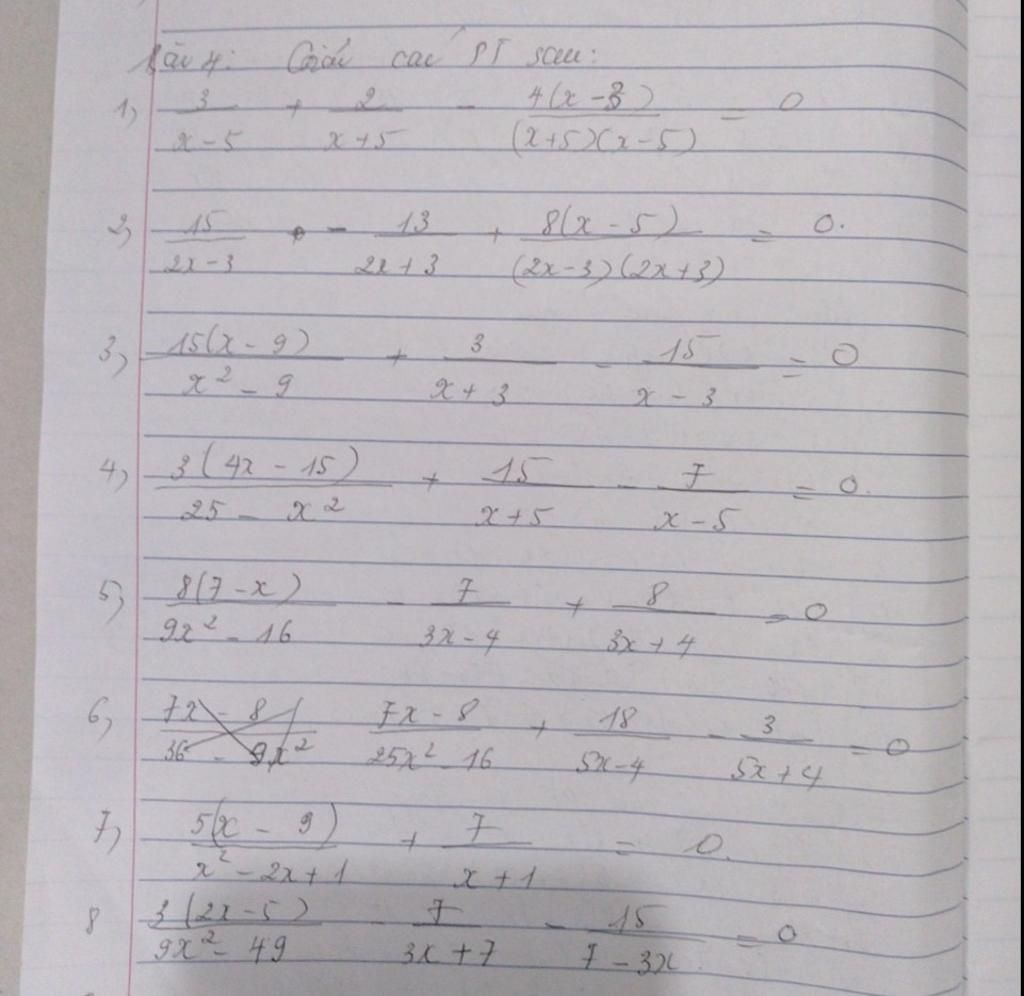 Bài 4: Giải các PT sau:
1) 3/(x-5) + 2/(x+5) - 4(x-3)/((x+5)(x-5)) = 0
2) 15/(2x-3) - 13/(2x+3) + 8(x-5)/((2x-3)(2x+3)) = 0.
3) 15(x-9)/(x²-9) + 3/(x+3) - 15/(x-3) = 0
4) 3(4x-15)/(25-x²) + 15/(x+5) - 7/(x-5) = 0.
5) 8(7-x)/(9x²-16) - 7/(3x-4) + 8/(3x+4) = 0
6) (7x-8)/(36-9x²) (7x-8)/(25x²-16) + 18/(5x-4) - 3/(5x+4) = 0
7) 5(x-9)/(x²-2x+1) + 7/(x+1) = 0.
8 3(2x-5)/(9x²-49) - 7/(3x+7) - 15/(7-3x) = 0